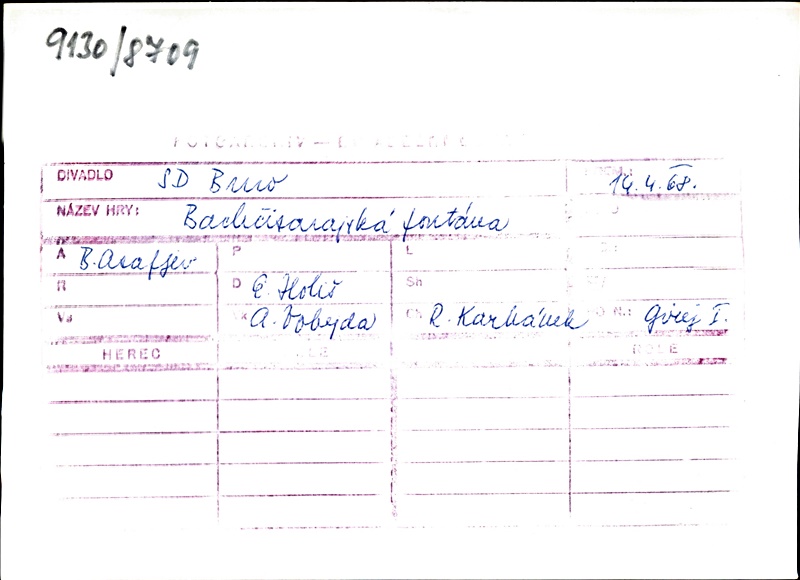 9130/8709
DIVADLO SD Brno 14.4.68.
NÁZEV HRY: Bachčisarajská fontána
A B. Asafjev P L
R D E. Holiš Sh
Vs A. Vobejda Ch R. Karhánek Girej I.
HEREC ROLE